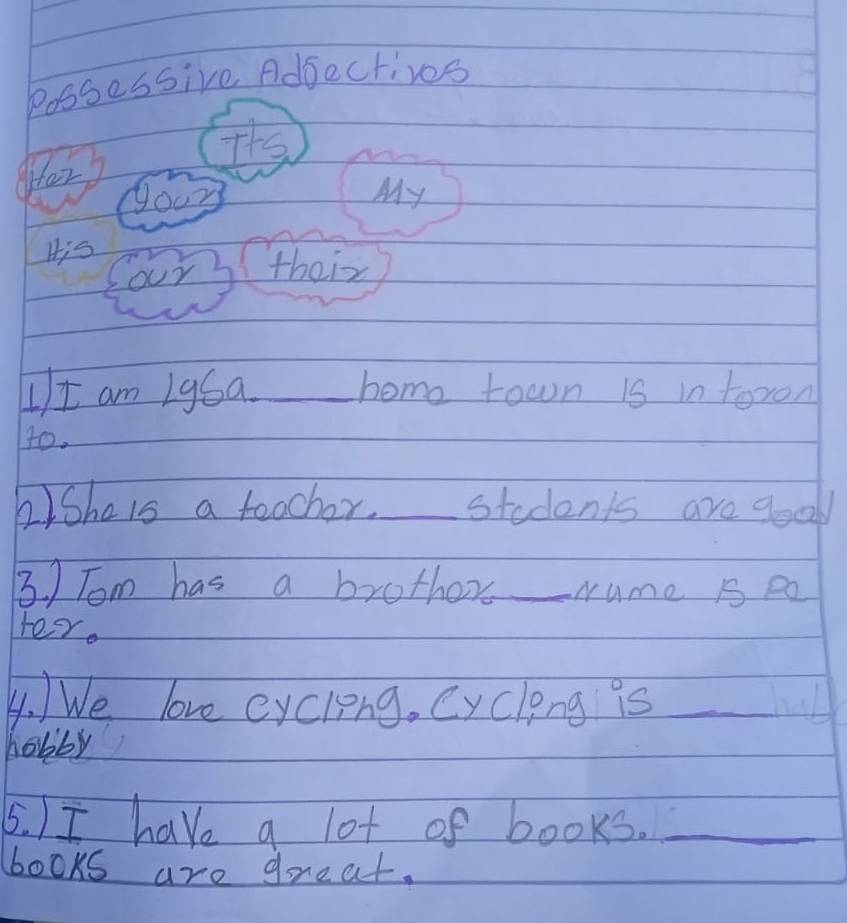 Possessive Adjectives
Its
Her
your
My
His
our
their
1) I am lysa. ___ home town is in toron
to.
2) She is a teacher. ___ students are good
3.) Tom has a brother. ___ name is Pe
ter.
4.) We love cycling. Cycling is ___
hobby
5.) I have a lot of books. ___
books are great.